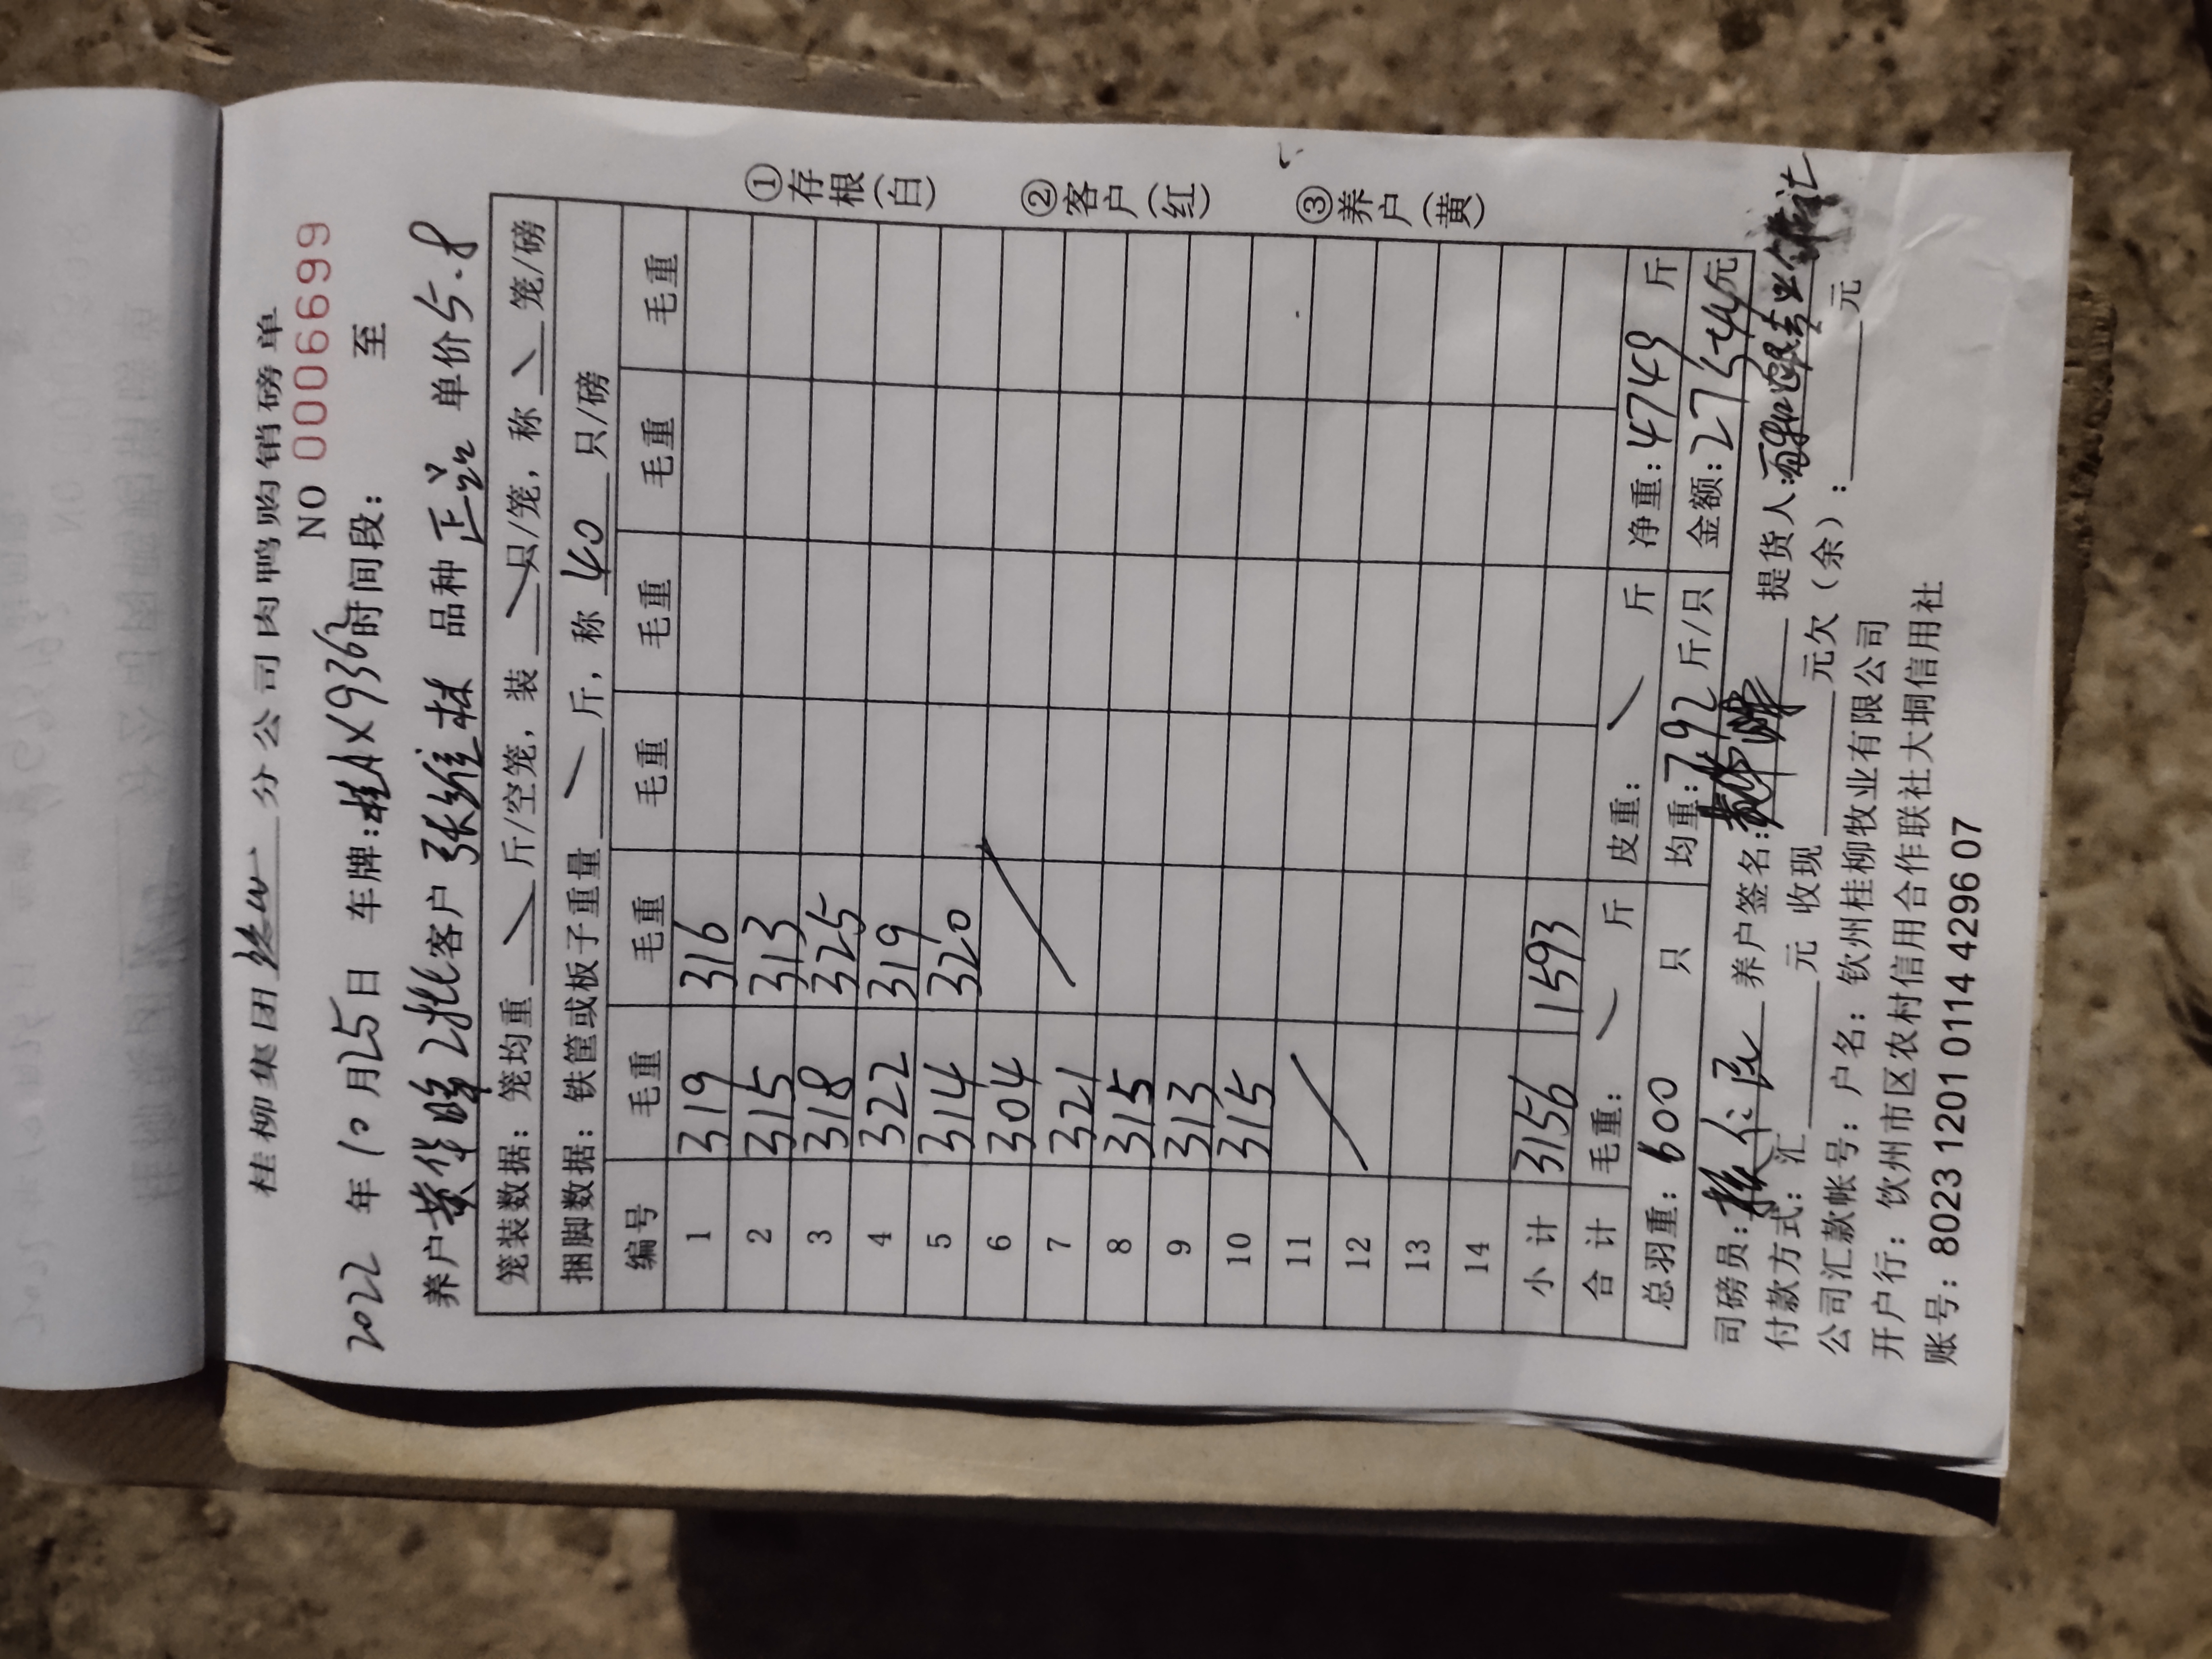 桂柳集团 分公司肉鸭购销磅单
NO 0006699
2022 年 10 月 25 日 车牌:桂AX9362 时间段: 至
养户 黄华峰2批 客户 张维林 品种 正品 单价 5.8
笼装数据: 笼均重 斤/空笼, 装 只/笼, 称 笼/磅
捆脚数据: 铁筐或板子重量 斤, 称 40 只/磅
编号 毛重 毛重 毛重 毛重 毛重 毛重
1 319 316
2 315 313
3 318 325
4 322 319
5 314 320
6 304
7 321
8 315
9 313
10 315
11
12
13
14
小计 3156 1593
合计 毛重: 斤 皮重: 斤 净重: 4749 斤
总羽重: 600 只 均重: 7.92 斤/只 金额: 27544 元
司磅员: 养户签名: 提货人:
付款方式: 汇 元 收现 元欠(余): 元
公司汇款帐号: 户名: 钦州桂柳牧业有限公司
开户行: 钦州市区农村信用合作联社大垌信用社
账号: 8023 1201 0114 4296 07
①存根(白)
②客户(红)
③养户(黄)